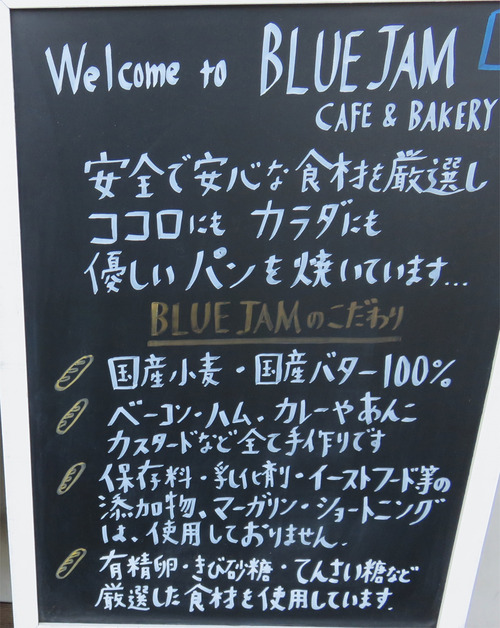 Welcome to BLUE JAM
CAFE & BAKERY
安全で安心な食材を厳選し
ココロにも カラダにも
優しいパンを焼いています...
BLUE JAMのこだわり
国産小麦・国産バター100%
ベーコン・ハム、カレーやあんこ
カスタードなど全て手作りです
保存料・乳化剤・イーストフード等の
添加物、マーガリン・ショートニング
は、使用しておりません。
有精卵・きび砂糖・てんさい糖など
厳選した食材を使用しています。